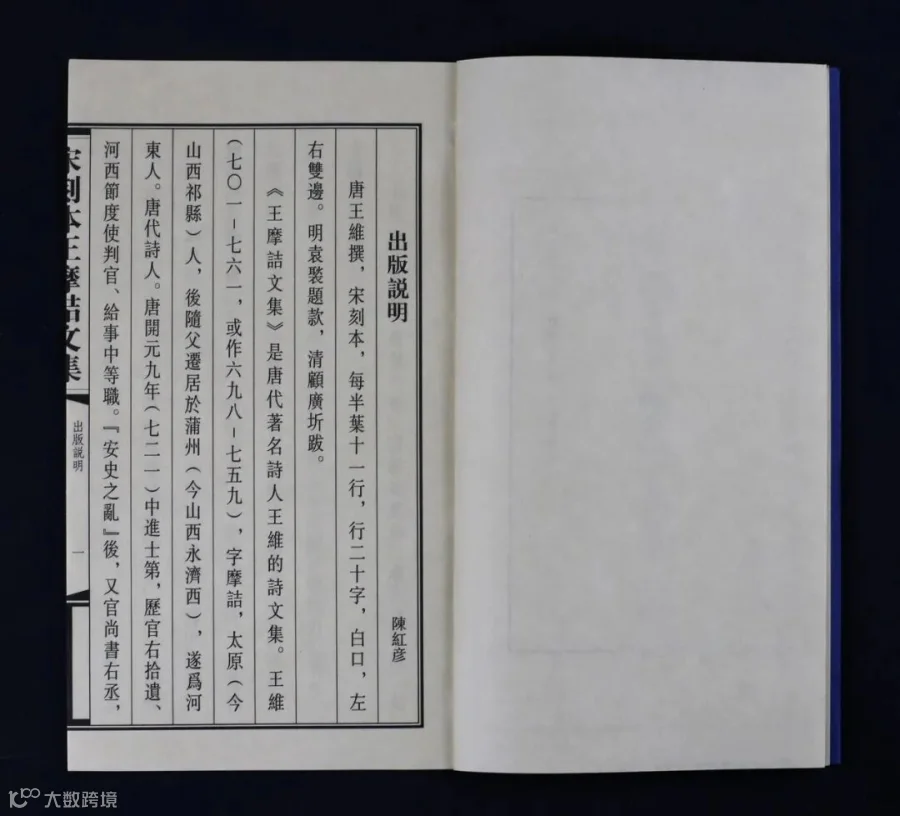 出版説明
陳紅彦
唐王維撰，宋刻本，每半葉十一行，行二十字，白口，左
右雙邊。明袁褧題款，清顧廣圻跋。
《王摩詰文集》是唐代著名詩人王維的詩文集。王維
（七〇一－七六一，或作六九八－七五九），字摩詰，太原（今
山西祁縣）人，後隨父遷居於蒲州（今山西永濟西），遂爲河
東人。唐代詩人。唐開元九年（七二一）中進士第，歷官右拾遺、
河西節度使判官、給事中等職。『安史之亂』後，又官尚書右丞，
宋刻本王摩詰文集
出版説明
一
大数跨境